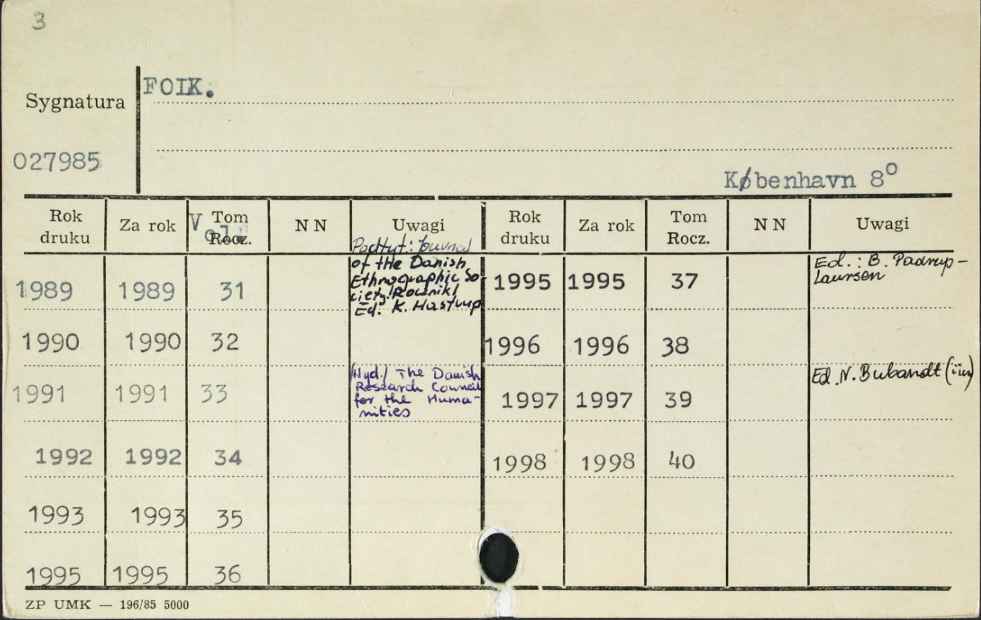 3
Sygnatura FOIK.
027985
København 8°
Rok druku Za rok Vol. Tom Rocz. N N Uwagi Rok druku Za rok Tom Rocz. N N Uwagi
Podtyt: Journal
of the Danish
Ethnographic So-
ciety /Rocznik/
Ed: K. Hastrup
1989 1989 31
1995 1995 37 Ed.: B. Padrup-
Laursen
1990 1990 32
1996 1996 38
1991 1991 33 /Wyd./ The Danish
Research Council
for the Huma-
nities
1997 1997 39 Ed. N. Bubandt (i in)
1992 1992 34
1998 1998 40
1993 1993 35
1995 1995 36
ZP UMK — 196/85 5000